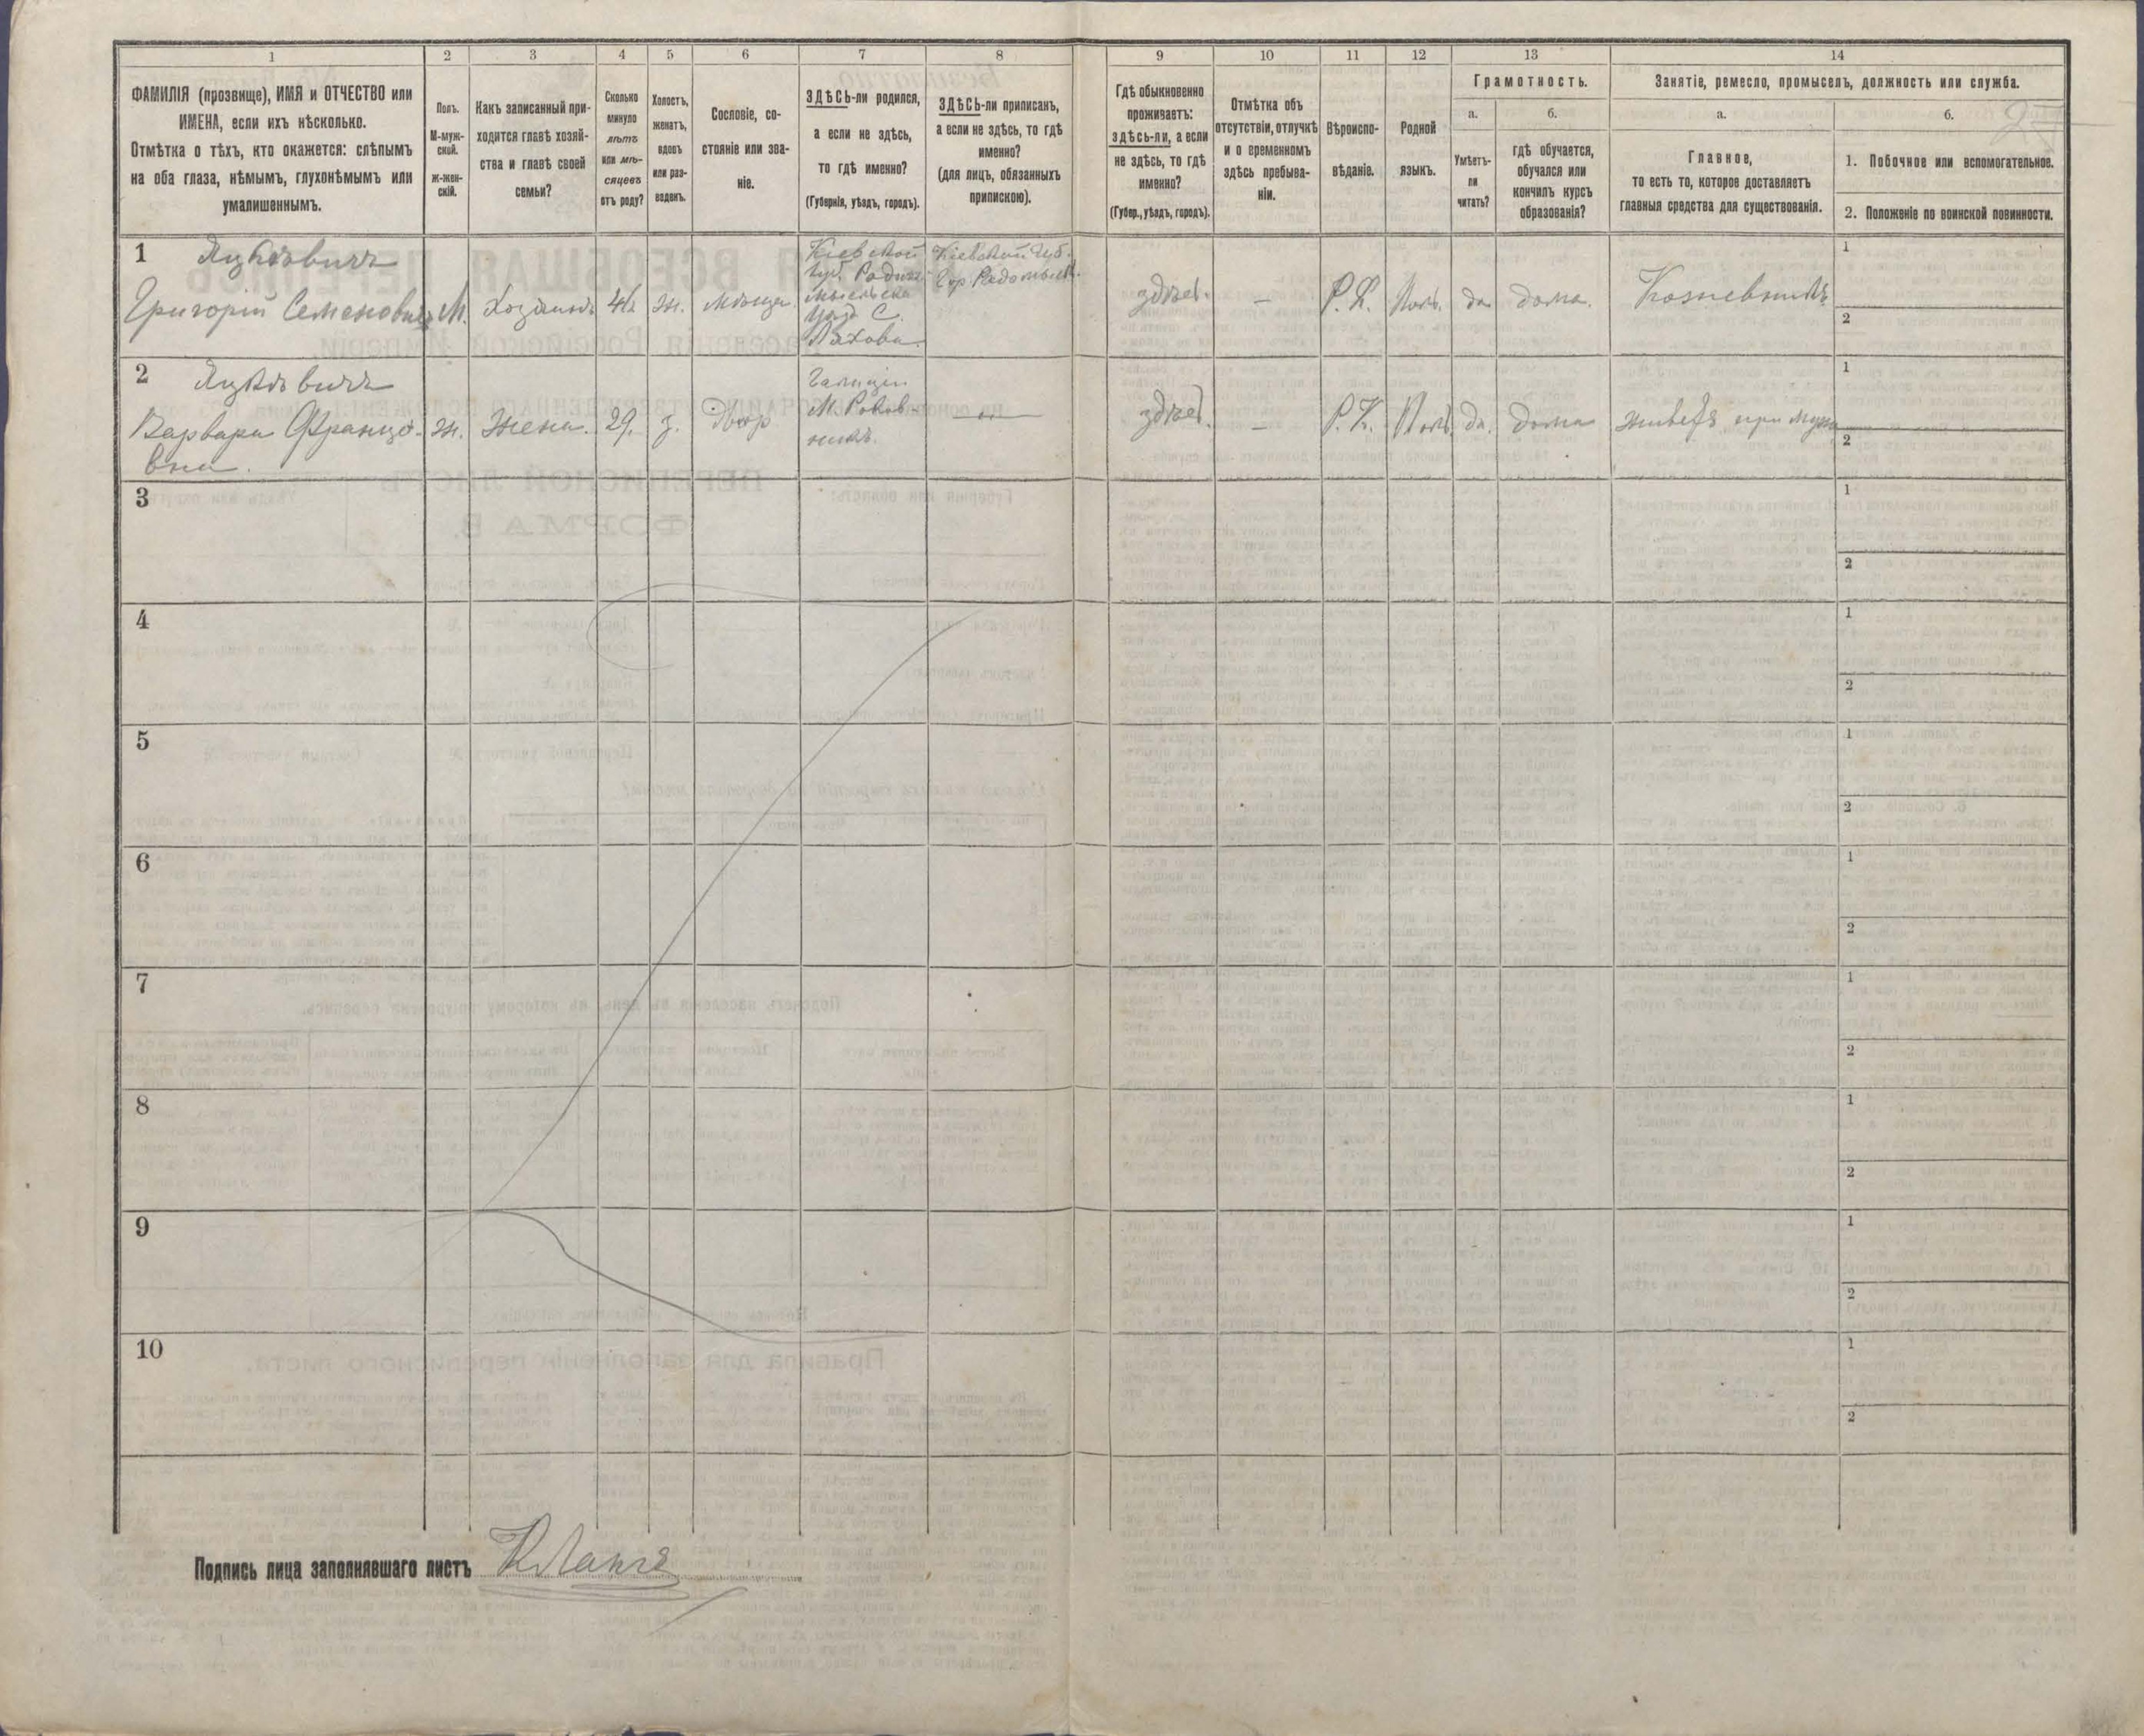 1 2 3 4 5 6 7 8 9 10 11 12 13 14
ФАМИЛІЯ (прозвище), ИМЯ и ОТЧЕСТВО или
ИМЕНА, если ихъ нѣсколько.
Отмѣтка о тѣхъ, кто окажется: слѣпымъ
на оба глаза, нѣмымъ, глухонѣмымъ или
умалишеннымъ.
Полъ.
М-муж-
ской.
Ж-жен-
скій.
Какъ записанный при-
ходится главѣ хозяй-
ства и главѣ своей
семьи?
Сколько
минуло
лѣтъ
или мѣ-
сяцевъ
отъ роду?
Холостъ,
женатъ,
вдовъ
или раз-
веденъ.
Сословіе, со-
стояніе или зва-
ніе.
ЗДѢСЬ-ли родился,
а если не здѣсь,
то гдѣ именно?
(Губернія, уѣздъ, городъ).
ЗДѢСЬ-ли приписанъ,
а если не здѣсь, то гдѣ
именно?
(для лицъ, обязанныхъ
припискою).
Гдѣ обыкновенно
проживаетъ:
здѣсь-ли, а если
не здѣсь, то гдѣ
именно?
(Губер., уѣздъ, городъ).
Отмѣтка объ
отсутствіи, отлучкѣ
и о временномъ
здѣсь пребыва-
ніи.
Вѣроиспо-
вѣданіе.
Родной
языкъ.
Грамотность.
а.
Умѣетъ-
ли
читать?
б.
гдѣ обучается,
обучался или
кончилъ курсъ
образованія?
Занятіе, ремесло, промыселъ, должность или служба.
а.
Главное,
то есть то, которое доставляетъ
главныя средства для существованія.
б.
1. Побочное или вспомогательное.
2. Положеніе по воинской повинности.
1
Григорій Семеновичъ
М.
Хозяинъ
ж.
Кіевской
губ. Радо
мысльска
С.
Кіевской губ.
Гор. Радомысль.
здѣсь.
—
Р. К.
Поль.
да
дома.
1
2
2
Варвара Францо-
вна.
ж.
Жена.
29.
з.
Двор
Галиціи
М.
— „ —
здѣсь.
—
Р. К.
Поль.
да.
дома
живетъ при мужѣ
1
2
3
1
2
4
1
2
5
1
2
6
1
2
7
1
2
8
1
2
9
1
2
10
1
2
Подпись лица заполнявшаго листъ